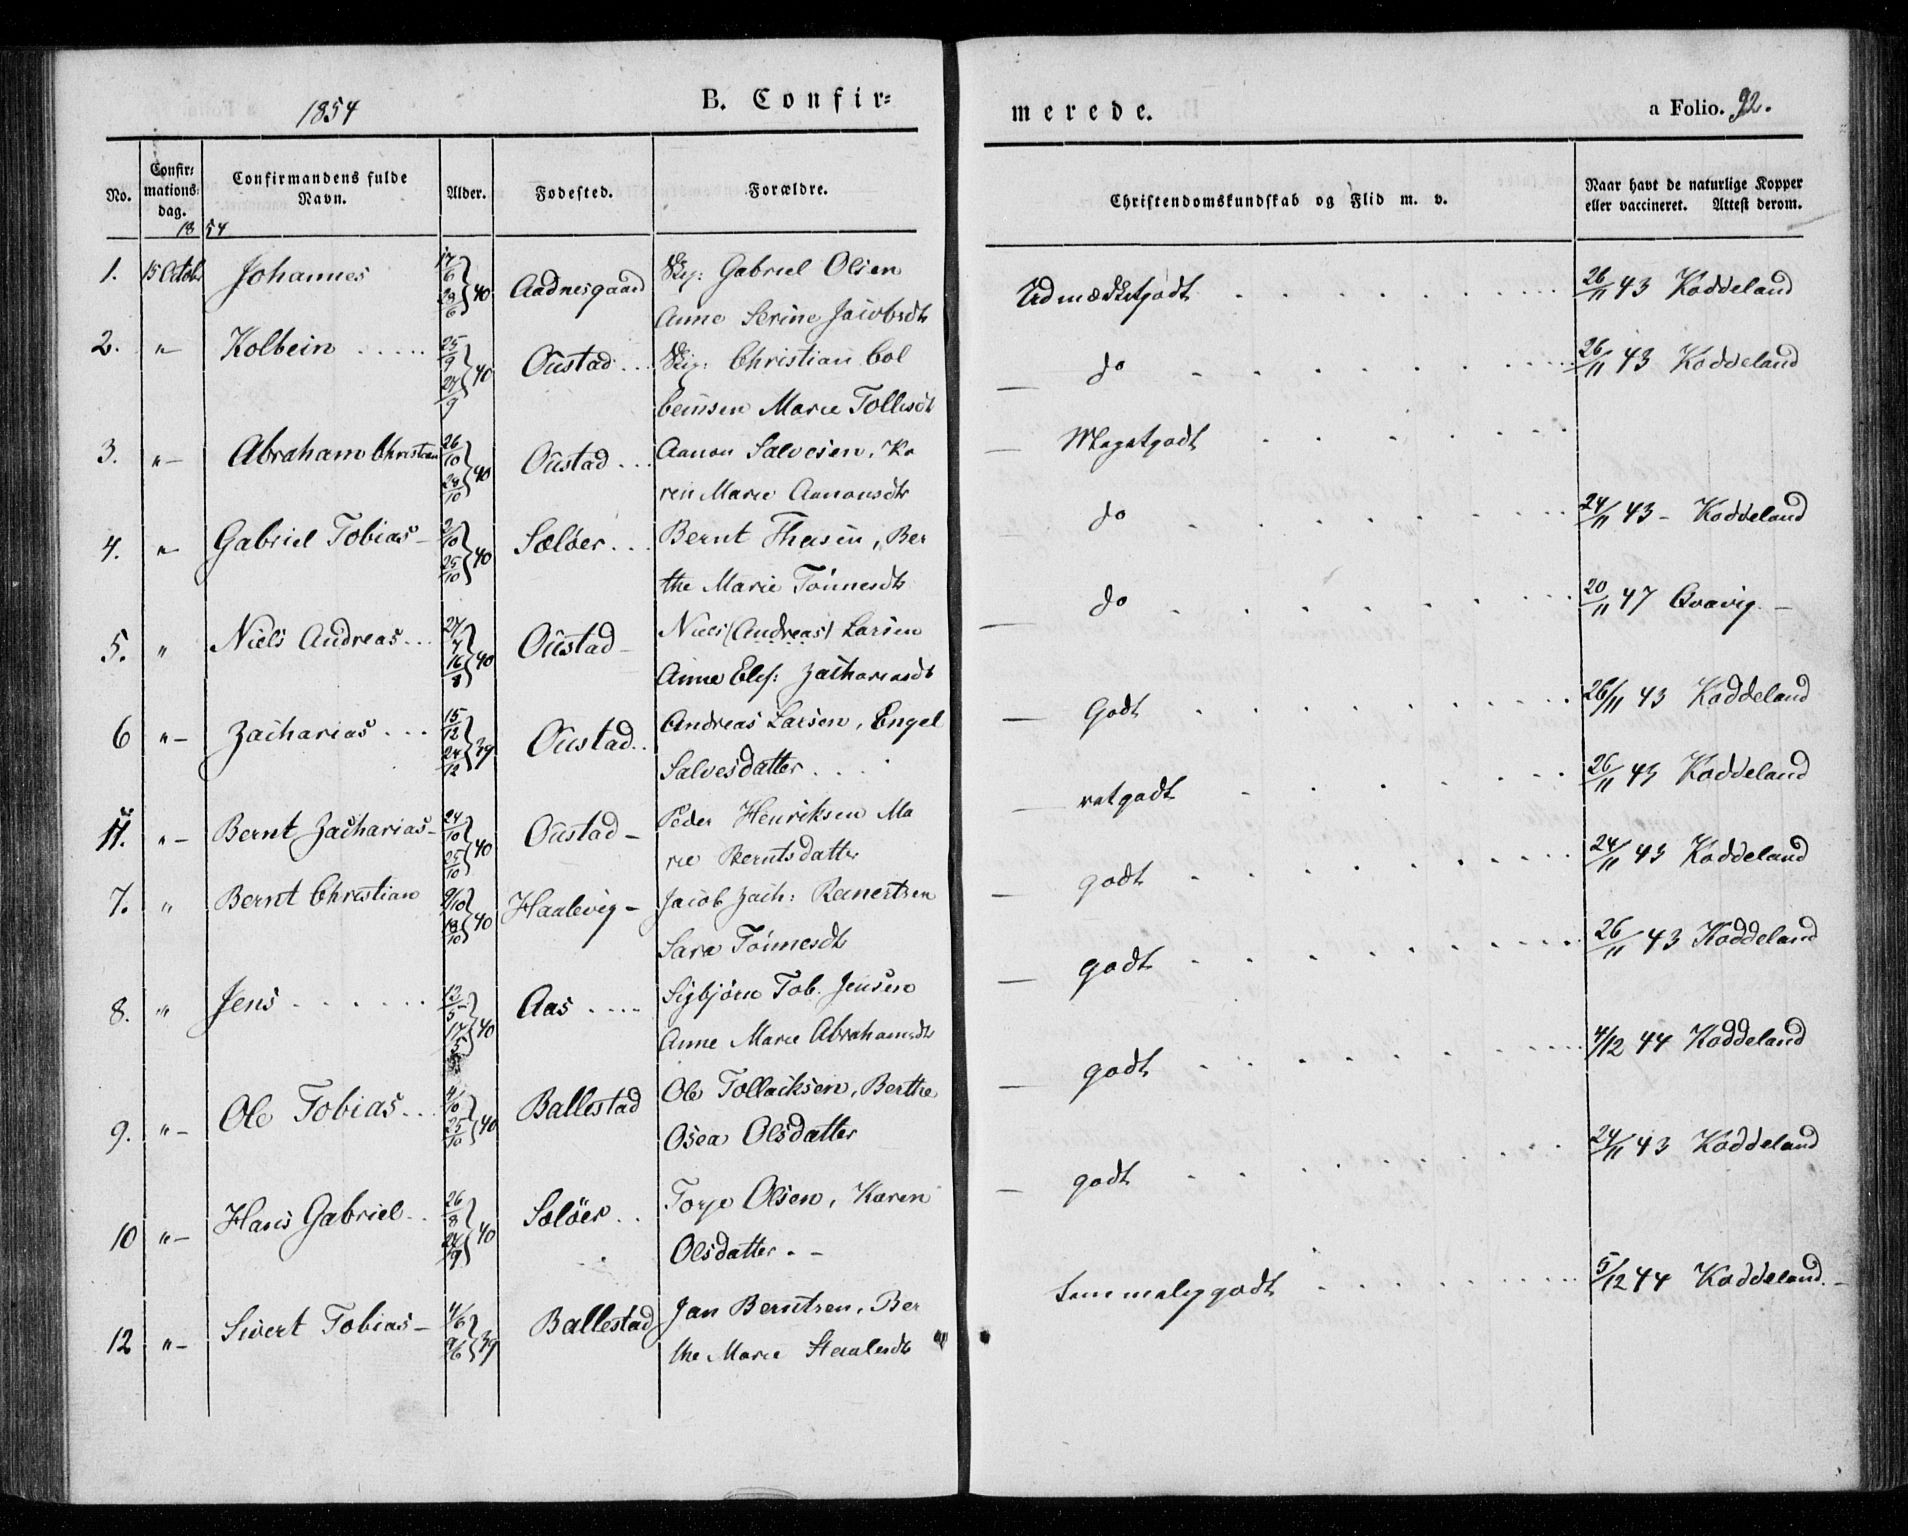 1854
B. Confir=
merede.
a Folio. 92.
No.
Confir= mations= dag.
Confirmandens fulde Navn.
Alder.
Fødested.
Forældre.
Christendomskundskab og Flid m. v.
Naar havt de naturlige Kopper eller vaccineret. Attest derom.
1854
1. 15 Octob Johannes 17/6 28/6 40 Aadnesgaard Skip: Gabriel Olsen
Anne Serine Jacobsdt
Udmærketgodt 26/11 43 Koddeland
2. " Kolbein 25/9 27/9 40 Oustad Skip: Christian Col
beinsen Marie Tollisdt
do 26/11 43 Koddeland
3. " Abraham Christian 26/10 28/10 40 Oustad Aanon Salvesen, Ka
ren Marie Aanonsdtr
Megetgodt
4. " Gabriel Tobias 2/10 25/10 40 Seløer Bernt Thesen, Ber
the Marie Tönnesdt
do 24/11 43 - Koddeland
5. " Niels Andreas 27/7 16/8 40 Oustad Niels (Andreas) Larsen
Anne Elis: Zachariasdt
do 20/11 47 Qvavig
6 " Zacharias 15/12 24/12 39 Oustad Andreas Larsen, Engel
Salvesdatter
Godt 26/11 43 Koddeland
11. " Bernt Zacharias 24/10 25/10 40 Oustad Peder Henriksen Ma
rie Berntsdatter
retgodt 26/11 43 Koddeland
7. " Bernt Christian 9/10 18/10 40 Haalevig Jacob Zach: Reinertsen
Sara Tönnesdt
godt 24/11 43 Koddeland
8. " Jens 13/5 17/5 40 Aas Sigbjørn Tob. Jensen
Anne Marie Abrahamsdt
godt 26/11 43 Koddeland
9. " Ole Tobias 4/10 25/10 40 Ballestad Ole Tollacksen, Berthe
Osea Olsdatter
godt 4/12 44 Koddeland
10 " Hans Gabriel 26/8 27/9 40 Seløer Torje Olsen, Karen
Olsdatter
godt 24/11 43 Koddeland
12 " Sivert Tobias 4/6 9/6 39 Ballestad Jan Berntsen, Ber
the Marie Staalesdt
temmeliggodt 5/12 44 Koddeland